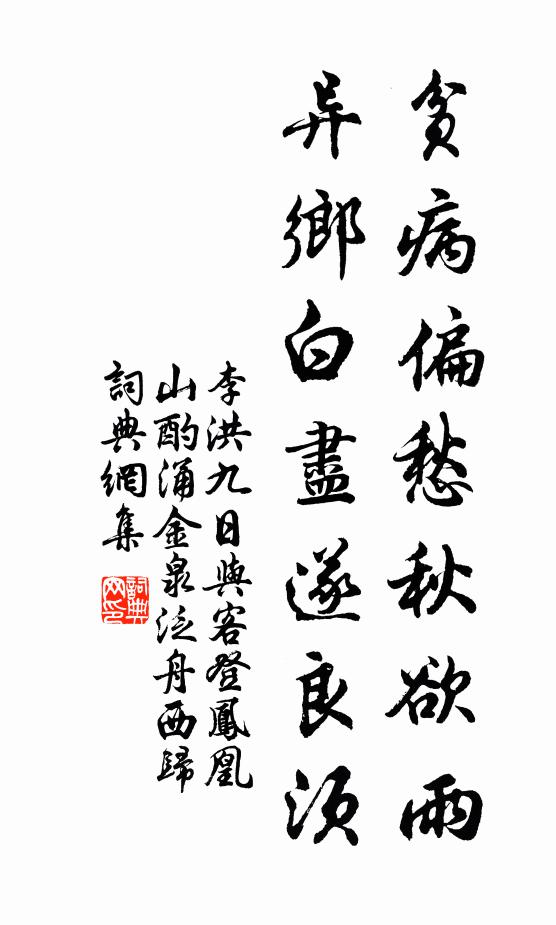 貧病偏愁秋欲雨
异鄉白盡遂良須
李洪九日與客登鳳凰
山酌涌金泉泛舟西歸
詞典網集
詞典
网印